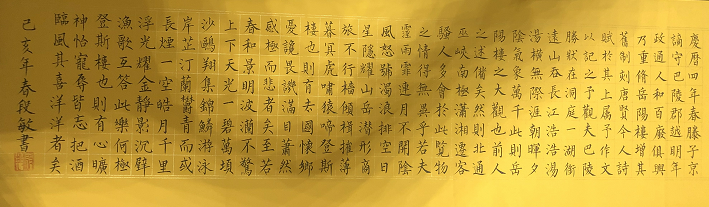 慶曆四年春滕子京
謫守巴陵郡越明年
政通人和百廢俱興
乃重脩岳陽樓增其
舊制刻唐賢今人詩
賦於其上屬予作文
以記之予觀夫巴陵
勝狀在洞庭一湖銜
遠山吞長江浩浩湯
湯橫無際涯朝暉夕
陰氣象萬千此則岳
陽樓之大觀也前人
之述備矣然則北通
巫峽南極瀟湘遷客
騷人多會於此覽物
之情得無異乎若夫
霪雨霏連月不開陰
風怒號濁浪排空日
星隱耀山岳潛形商
旅不行檣傾楫摧薄
暮冥虎嘯猿啼登斯
樓也則有去國懷鄉
憂讒畏譏滿目蕭然
感極而悲者矣至若
春和景明波瀾不驚
上下天光一碧萬頃
沙鷗翔集錦鱗游泳
岸芷汀蘭鬱青而或
長煙一空皓月千里
浮光耀金靜影沉璧
漁歌互答此樂何極
登斯樓也則有心曠
神怡寵辱皆忘把酒
臨風其喜洋洋者矣
己亥年春段敏書